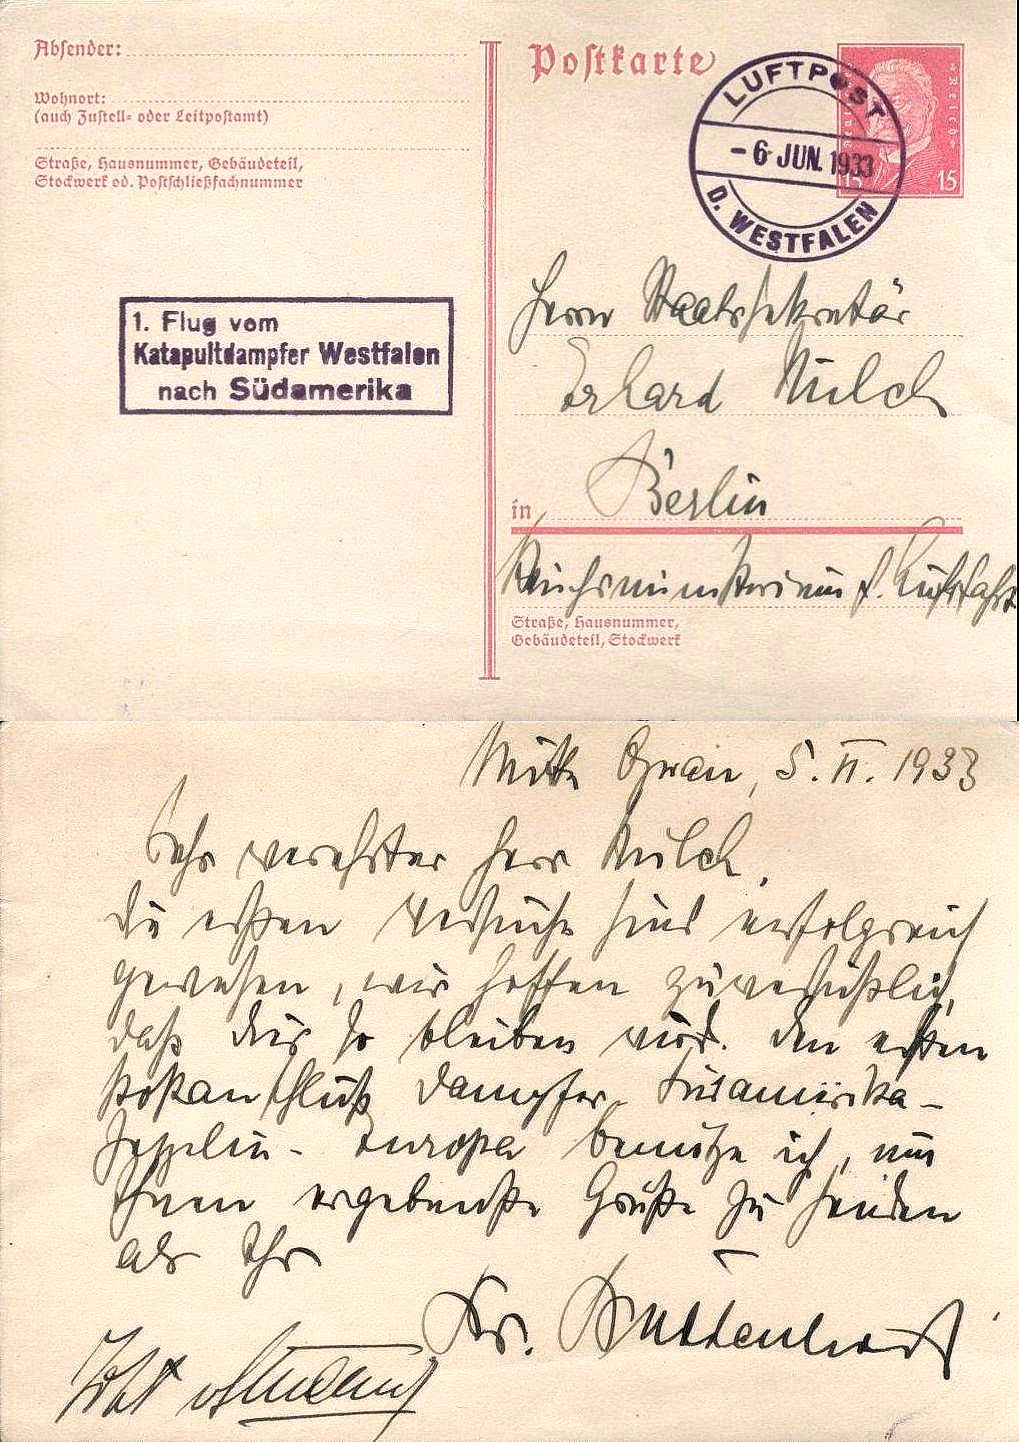 Absender:
Wohnort:
(auch Zustell- oder Leitpostamt)
Straße, Hausnummer, Gebäudeteil,
Stockwerk od. Postschließfachnummer
1. Flug vom
Katapultdampfer Westfalen
nach Südamerika
Postkarte
LUFTPOST
-6 JUN. 1933
D. WESTFALEN
15 15
Herrn Staatssekretär
Erhard Milch
in Berlin
Reichsministerium f. Luftfahrt
Straße, Hausnummer,
Gebäudeteil, Stockwerk
Mitte Ozean, 5. VI. 1933
Sehr verehrter Herr Milch,
die ersten Versuche sind erfolgreich
gewesen, wir hoffen zuversichtlich,
daß dies so bleiben wird. Den ersten
Postanschluß Dampfer-Südamerika-
Zeppelin-Europa benutze ich, um
Ihnen ergebenste Grüße zu senden
als Ihr
Dr.